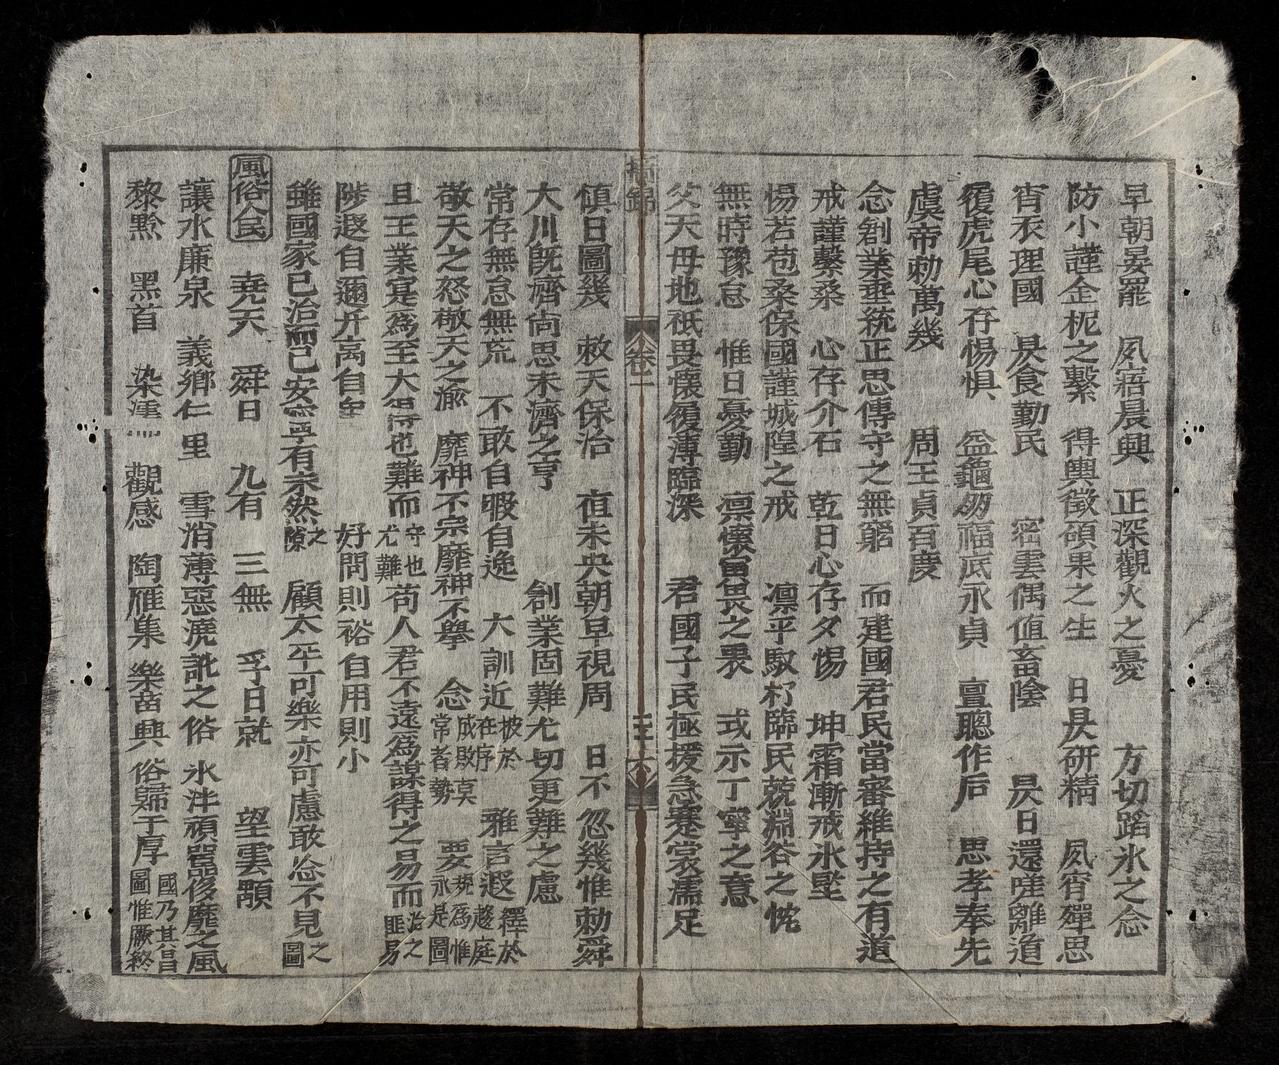 早朝晏罷 夙寤晨興 正深觀火之憂 方切蹈氷之念
防小謹金柅之繫 得輿徵碩果之生 日昃研精 夙宵殫思
宵衣理國 昃食勤民 密雲偶值畜陰 昃日還嗟離道
履虎尾心存惕惧 益龜 福底永貞 亶聰作后 思孝奉先
虞帝勅萬幾 周王貞百度
念創業垂統正思傳守之無窮 而建國君民當審維持之有道
戒謹繫桑 心存介石 乾日心存夕惕 坤霜漸戒氷堅
惕若苞桑保國謹城隍之戒 凛乎馭朽臨民兢淵谷之忱
無時豫怠 惟日憂勤 凛懷畏之畏 或示丁寧之意
父天母地祇畏懷履薄臨深 君國子民極援急褰裳濡足
摛錦 卷一 六
慎日圖幾 敕天保治 直未央朝早視周 日不忽幾惟勅舜
大川旣濟尙思未濟之亨 創業固難尤切更難之慮
常存無怠無荒 不敢自暇自逸 大訓近在序披於 雅言遐趨庭繹於
敬天之怒敬天之渝 靡神不宗靡神不擧 念常者勢成敗莫 要永是圖規爲惟
且王業寔爲至大得也難而尤難守也 苟人君不遠爲謀得之易而匪易治之
陟遐自邇升高自卑 好問則裕自用則小
雖國家已治而已安寧有未然之隙 顧太平可樂亦可慮敢忩不見之圖
風俗人民 堯天 舜日 九有 三無 孚日就 望雲顒
讓水廉泉 義鄕仁里 雪消薄惡澆訛之俗 氷泮頑嚚侈靡之風
黎黔 黑首 染 觀感 陶 雁集 樂 興 俗歸于厚國乃其昌圖惟厥終